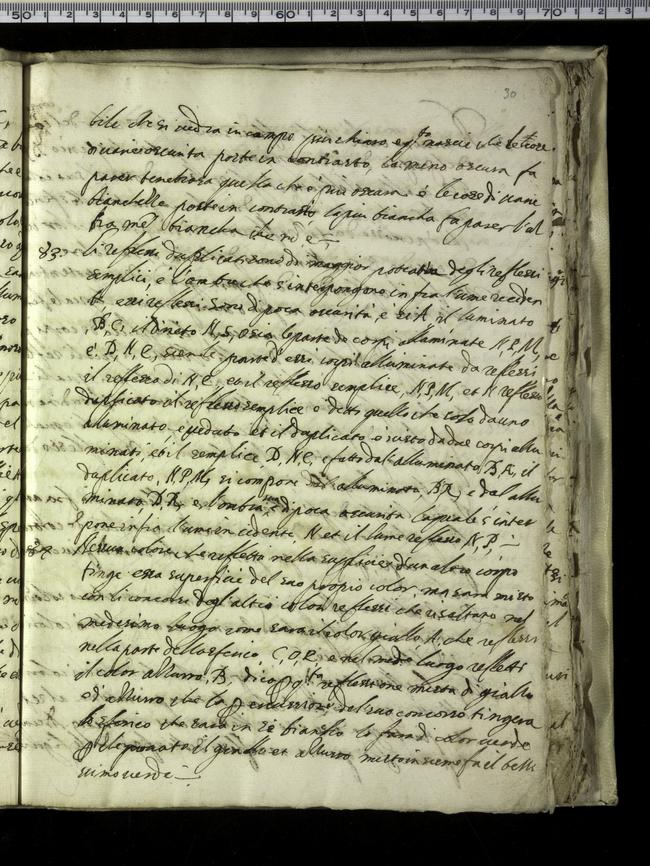 30
bili che si vedra in campo piu chiaro, e q.to nascie che le cose
di varie oscurita poste in contrasto, la meno oscura fa
parer tenebrosa quella che è piu oscura, è le cose di varie
bianchezze poste in contrasto la piu bianca fa parer l'al
tra men bianca che nō è
83. li reflessi duplicati sono di maggior potentia degli reflessi
semplici, è l'ombre che s'interpongono infra l'ume inciden
te essi reflessi sono di poca oscurità, è si A, il luminato
B, C, il N, S, O, sia le parte de corpi alluminate N, P, M,
è D, N, C, sien le parte d'essi corpi alluminate da reflessi
il reflesso di N, C, et il reflesso semplice, N, P, M, et il reflesso
duplicato il reflesso semplice è detto quello che solo da uno
aluminato, è veduto et il duplicato è visto da due corpi allu
minati, et il semplice, D, N, C, è fatto dal'alluminato, B, A, il
duplicato, N, P, M, si compone dal'aluminato, B, A, e dal'allu
minato D, R, e l'ombra sua è di poca oscurita laquale s'inter
pone infra il lume incidente, N et il lume reflesso N, P,
Nessun colore che refletta nella superficie d'un altro corpo
tinge essa superficie del suo proprio color, ma sara misto
con li concorsi degl'altri colori reflessi che resaltano nel
medesimo luogo come sara il color giallo A, che reflessi
nella parte dello sferico, C, O, E, e nel mede.o luogo refletti
il color azurro, B, dico p q.ta reflessione mista di giallo
e di azurro che la percussione del suo concorso tingera
lo sferico che s'era in se bianco lo fara di color verde
p che provato il giallo et azurro misto insieme fa il belli
ssimo verde